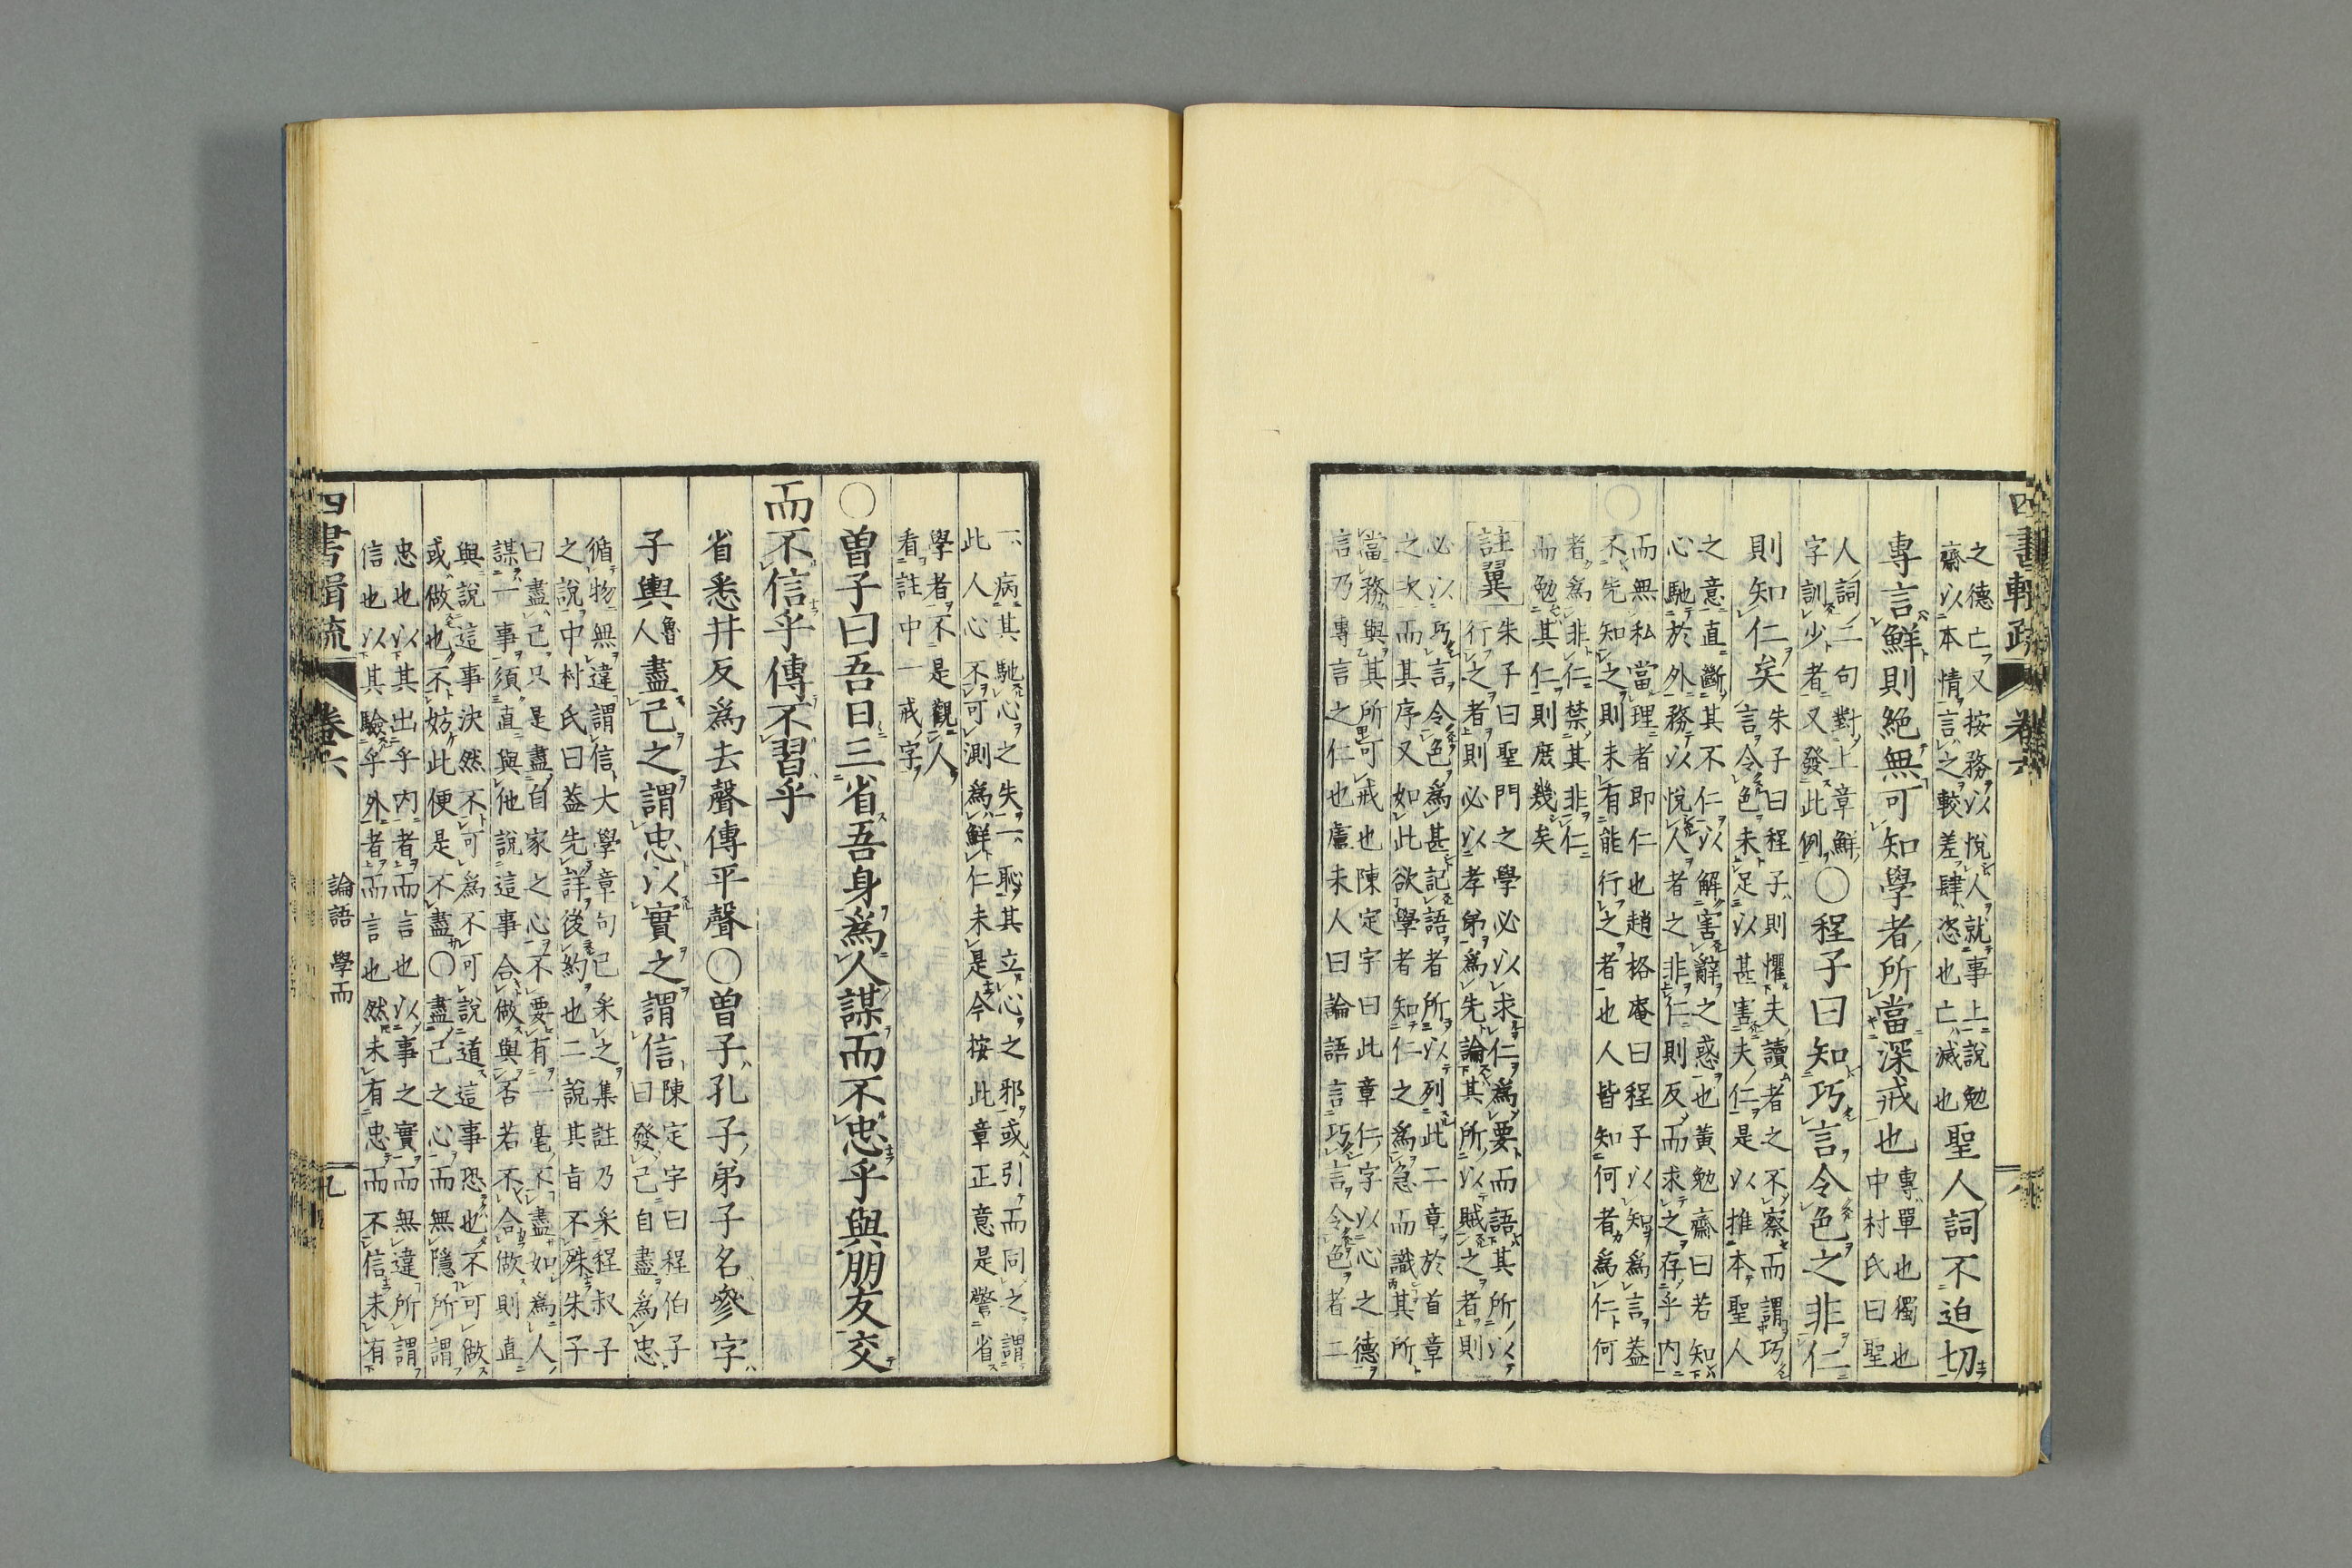 四書輯疏 卷六 八
之德亡又按務以悅人就事上說勉
齋以本情言之較差肆恣也亡滅也
聖人詞不迫切
專言鮮則絕無可知學者所當深戒也
專單也獨也
中村氏曰聖
人詞二句對上章鮮
字訓少者又發此例
○程子曰知巧言令色之非仁
則知仁矣
朱子曰程子則懼夫讀者之不察而謂巧
言令色未足以甚害夫仁是以推本聖人
之意直斷其不仁以解害辭之惑也黃勉齋曰若知
心馳於外務以悅人者之非仁則反而求之存乎内
而無私當理者即仁也趙格庵曰程子以知爲言蓋
不先知之則未有能行之者也人皆知何者爲仁何
者爲非仁禁其非仁
而勉其仁則庶幾矣
註翼
朱子曰聖門之學必以求仁爲要而語其所以
行之者則必以孝弟爲先論其所以賊之者則
必以巧言令色爲甚記語者所以列此二章於首章
之次而其序又如此欲學者知仁之爲急而識其所
當務與其所可戒也陳定宇曰此章仁字以心之德
言乃專言之仁也盧未人曰論語言巧言令色者二
一病其馳心之失一恥其立心之邪或引而同之謂
此人心不可測爲鮮仁未是今按此章正意是警省
學者不是觀人
看註中一戒字
○曾子曰吾日三省吾身爲人謀而不忠乎與朋友交
而不信乎傳不習乎
省悉井反爲去聲傳平聲○曾子孔子弟子名參字
子輿
魯人
盡己之謂忠以實之謂信
陳定宇曰程伯子
曰發己自盡爲忠
循物無違謂信大學章句已采之集註乃采程叔子
之說中村氏曰蓋先詳後約也二說其旨不殊朱子
曰盡己只是盡自家之心不要有一毫不盡如爲人
謀一事須直與他說這事合做與否若不合做則直
與說這事決然不可爲不可說道這事恐也不可做
或做也不妨此便是不盡○盡己之心而無隱所謂
忠也以其出乎内者而言也以事之實而無違所謂
信也以其驗乎外者而言也然未有忠而不信未有
四書輯疏 卷六 論語 學而 九